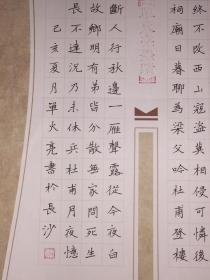 終不改西山寇盜莫相侵可憐後
祠廟日暮聊為梁父吟杜甫登樓
斷人行秋邊一雁聲露從今夜白
故鄉明有弟皆分散無家問死生
長不達況乃未休兵杜甫月夜憶
己亥夏月單火亮書於長沙